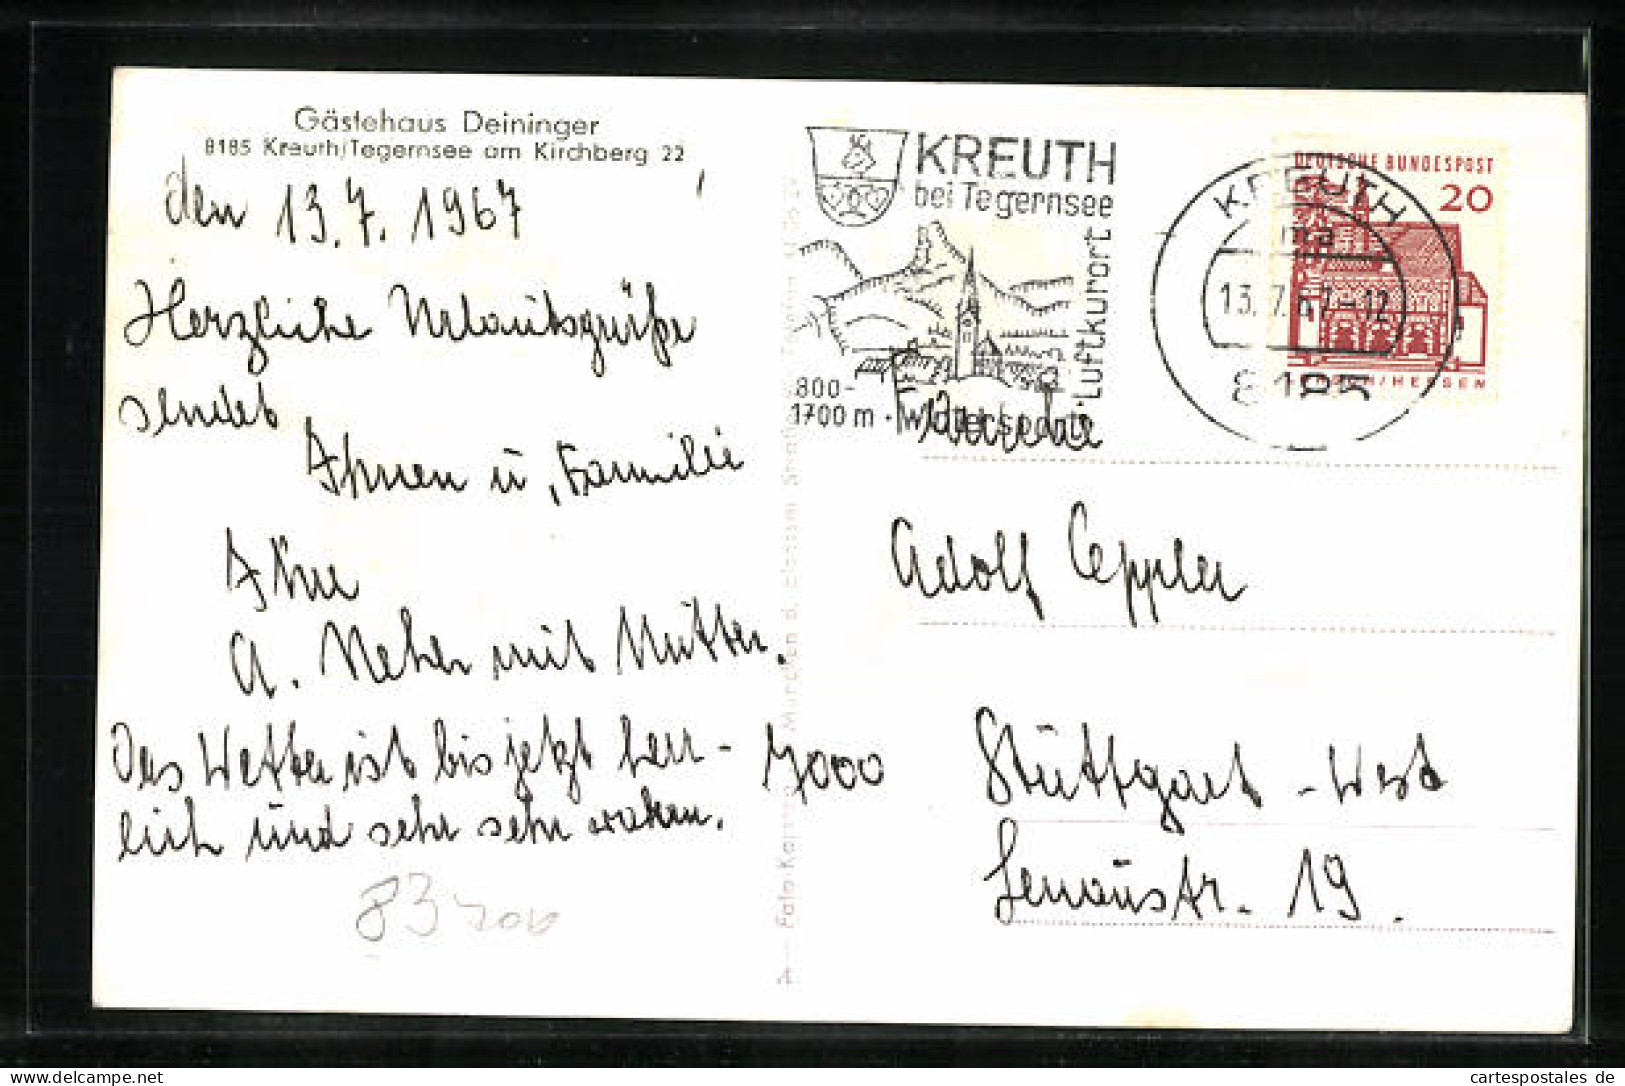 Gästehaus Deininger
8185 Kreuth/Tegernsee am Kirchberg 22
den 13.7.1967
Herzliche Urlaubsgrüße
sendet
Ihnen u. Familie
Ihre
A. Neher mit Mutter.
Das Wetter ist bis jetzt herr-
lich und sehr sehr warm.
83
KREUTH
bei Tegernsee
Luftkurort
800-
1700 m · Wintersportl
DEUTSCHE BUNDESPOST
20
LORSCH/HESSEN
KREUTH
13.7.67-12
8185
Familie
Adolf Eppler
7000 Stuttgart-West
Lenaustr. 19.
cartespostales de